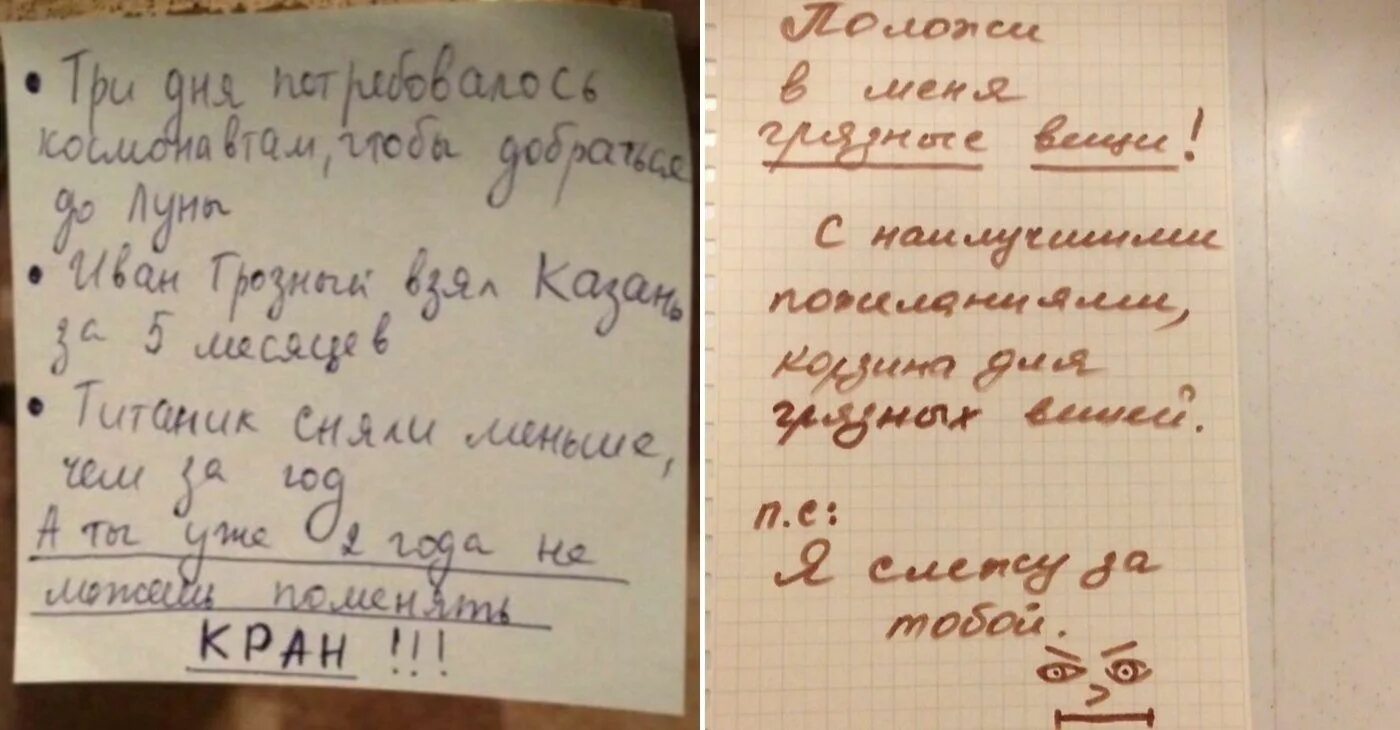 • Три дня потребовалось
космонавтам, чтобы добраться
до Луны
• Иван Грозный взял Казань
за 5 месяцев
• Титаник сняли меньше,
чем за год
А ты уже 2 года не
можешь поменять
КРАН !!!
Положи
в меня
грязные вещи!
С наилучшими
пожеланиями,
корзина для
грязных вещей.
п.с:
Я слежу за
тобой.